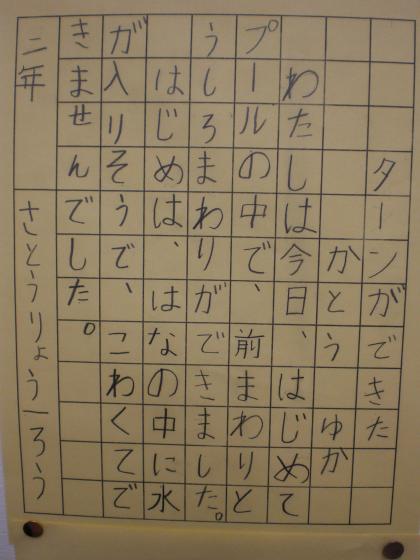 ターンができた
かとう ゆか
わたしは今日、はじめて
プールの中で、前まわりと
うしろまわりができました。
はじめは、はなの中に水
が入りそうで、こわくてで
きませんでした。
二年 さとうりょう一ろう